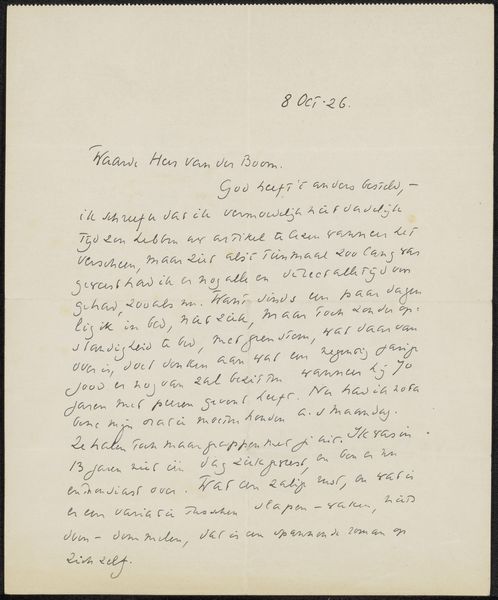 8 Oct. 26.
Waarde Heer van der Boom.
God heeft 't anders besteld, –
ik schreef u dat ik vermoedelijk niet dadelijk
tijd zou hebben uw artikel te lezen wanneer het
verscheen, maar zelfs als 't 100 lang was
geweest had ik er nog alle en de rest altijd voor
gehad, zooals nu. Want sinds een paar dagen
lig ik in bed, niet ziek, maar toch zonder op-
standigheid te bed, met
over is, doet denken aan wat een negentig jarige
jood er nog van zal bezitten wanneer hij 70
jaren met geleurd heeft. Nu had ik nota
bene mijn oratie moeten houden a.s. maandag.
Ze halen toch maar grappen met je uit. Ik was in
13 jaren niet één dag ziek geweest, en ben er nu
enthousiast over. Wat een zalige rust, en wat is
er een variatie tusschen slapen – waken, niets
doen – dommelen, dat is een spannende roman op
zich zelf.